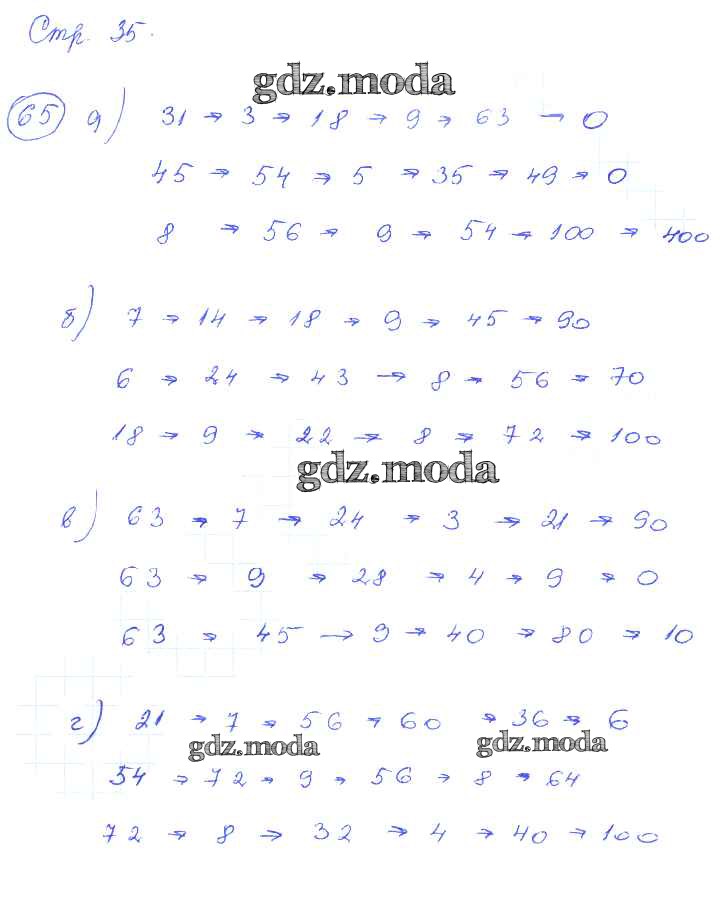 Стр. 35.
gdz.moda
65 а) 31 → 3 → 18 → 9 → 63 → 0
45 → 54 → 5 → 35 → 49 → 0
8 → 56 → 9 → 54 → 100 → 400
б) 7 → 14 → 18 → 9 → 45 → 90
6 → 24 → 43 → 8 → 56 → 70
18 → 9 → 22 → 8 → 72 → 100
gdz.moda
в) 63 → 7 → 24 → 3 → 21 → 90
63 → 9 → 28 → 4 → 9 → 0
63 → 45 → 9 → 40 → 80 → 10
г) 21 → 7 → 56 → 60 → 36 → 6
gdz.moda gdz.moda
54 → 72 → 9 → 56 → 8 → 64
72 → 8 → 32 → 4 → 40 → 100